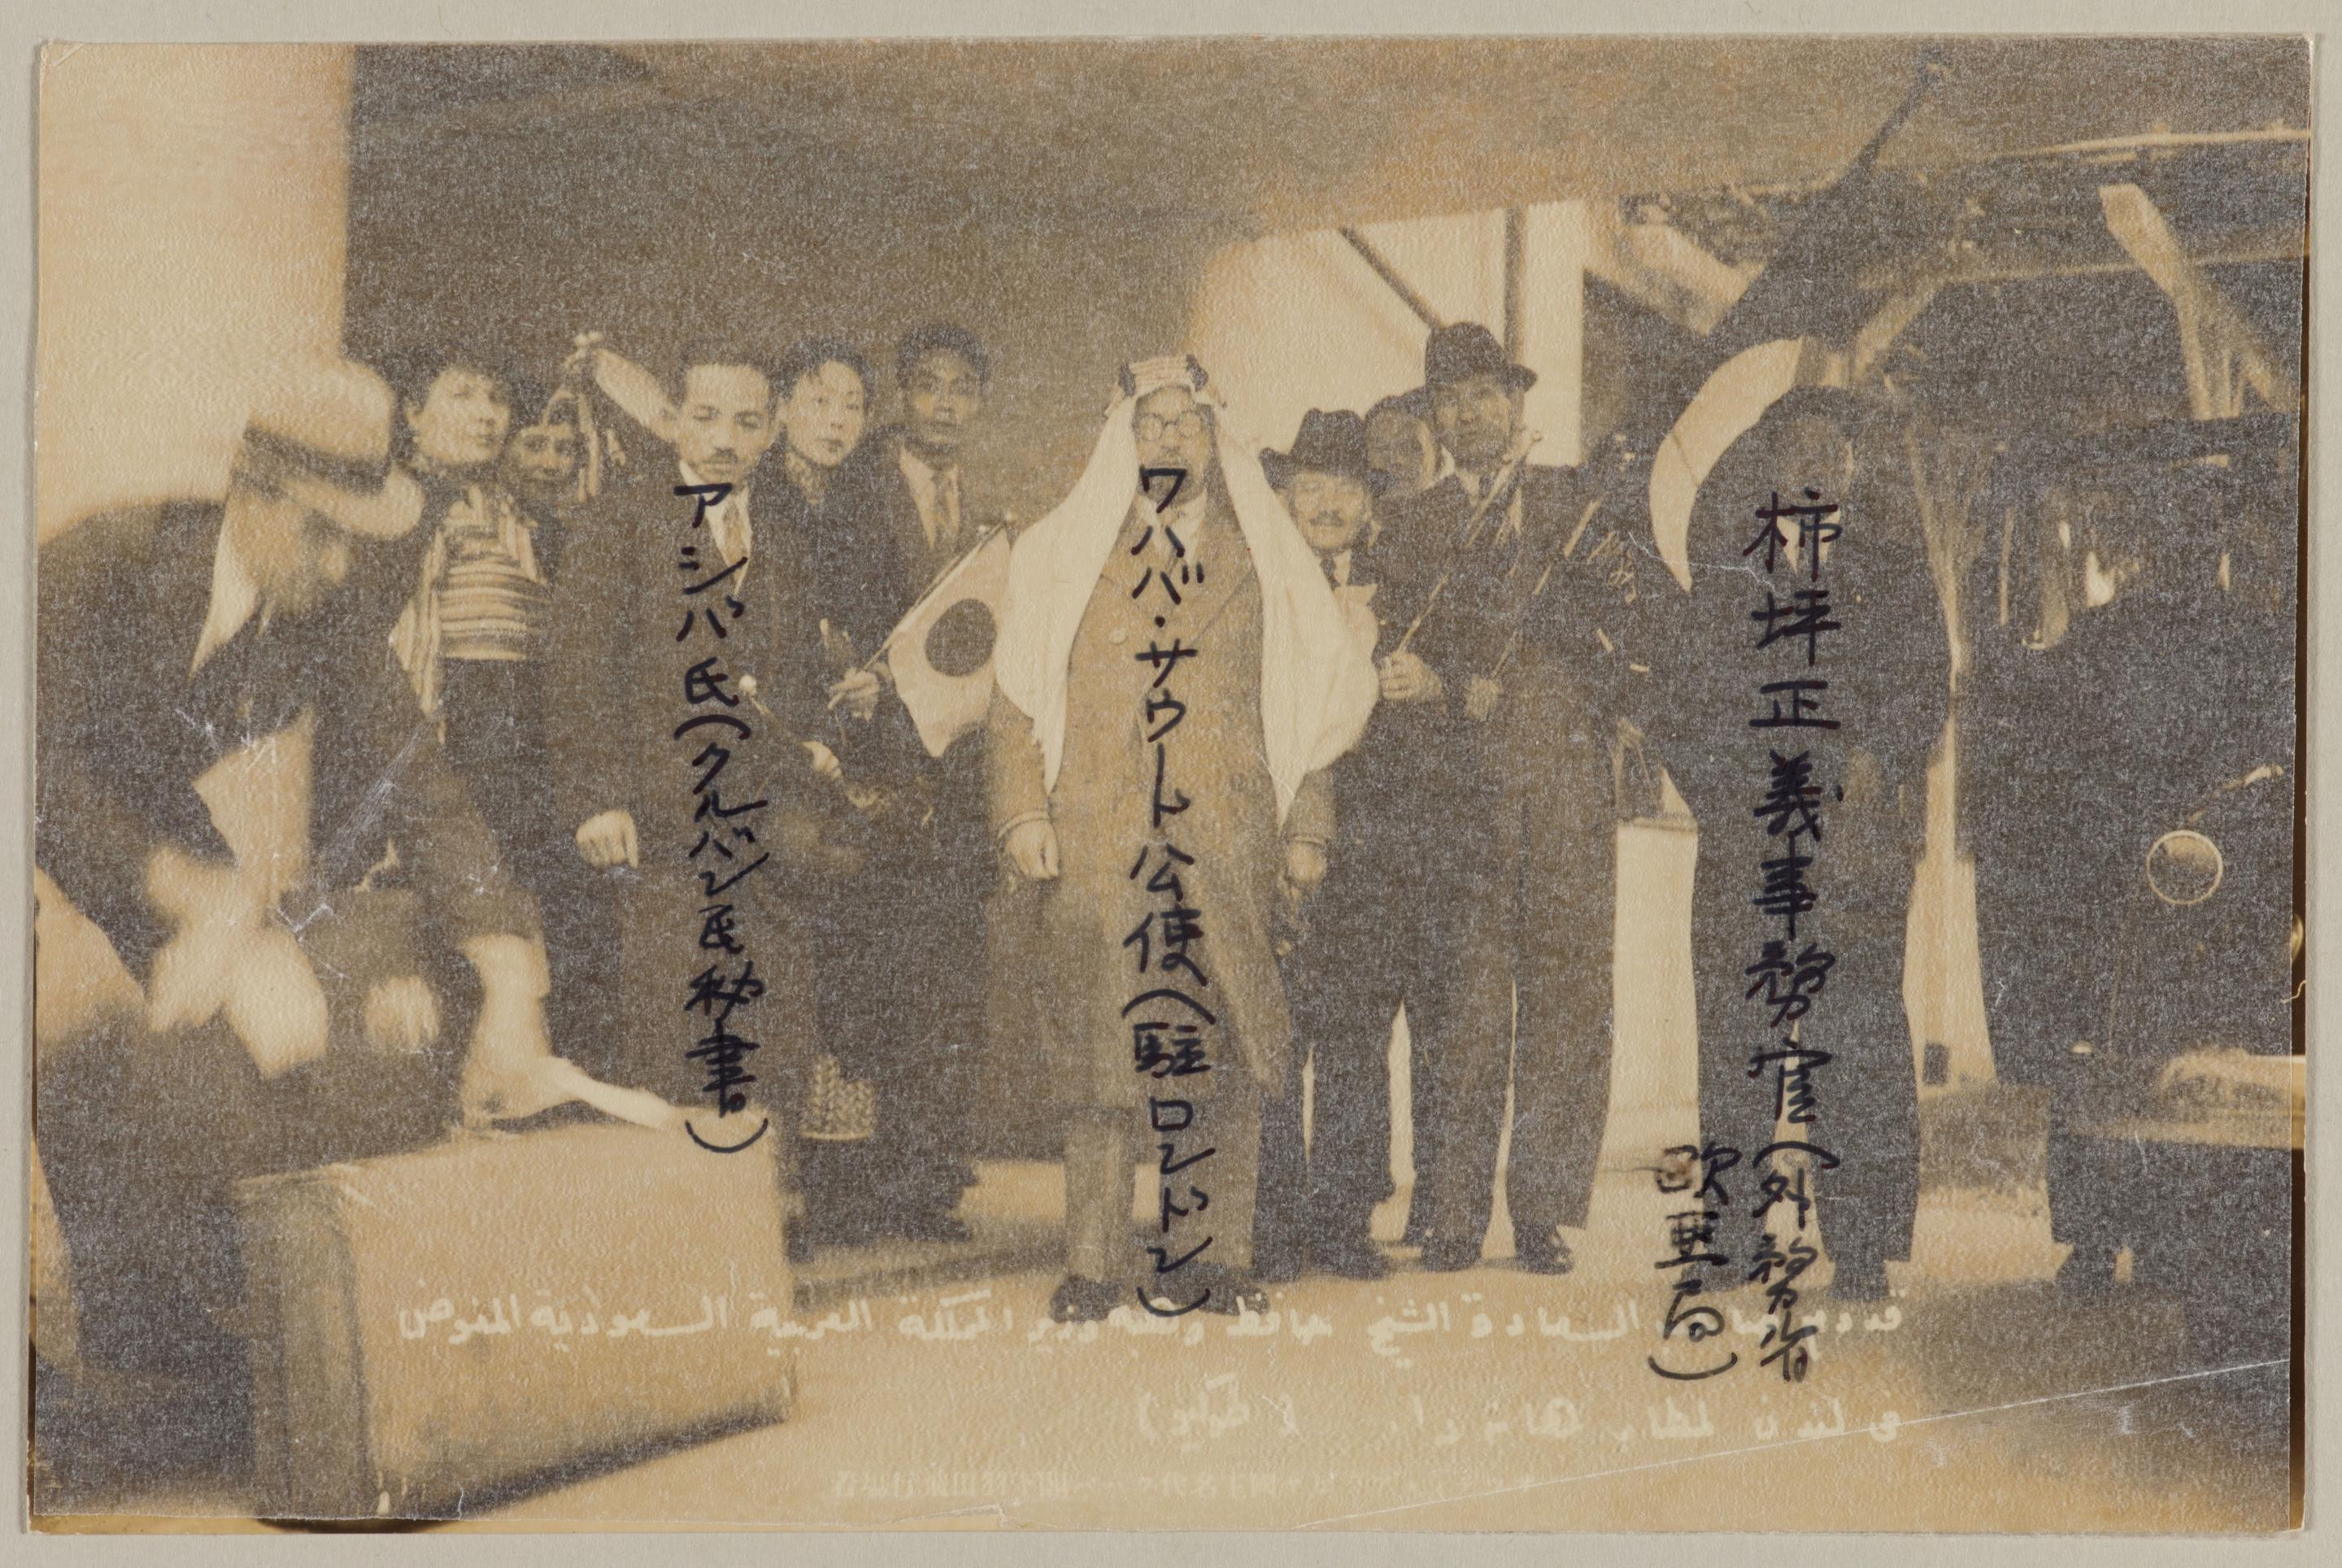 柿坪正義事務官(外務省
欧亜局)
ワハバ・サウート公使(駐ロンドン)
アシバ氏(クルバン氏秘書)
السعادة الشيخ حافظ وهبه وزير المملكة العربية السعودية المفوض
فى لندن لمطار هانيدا. (طوكيو)